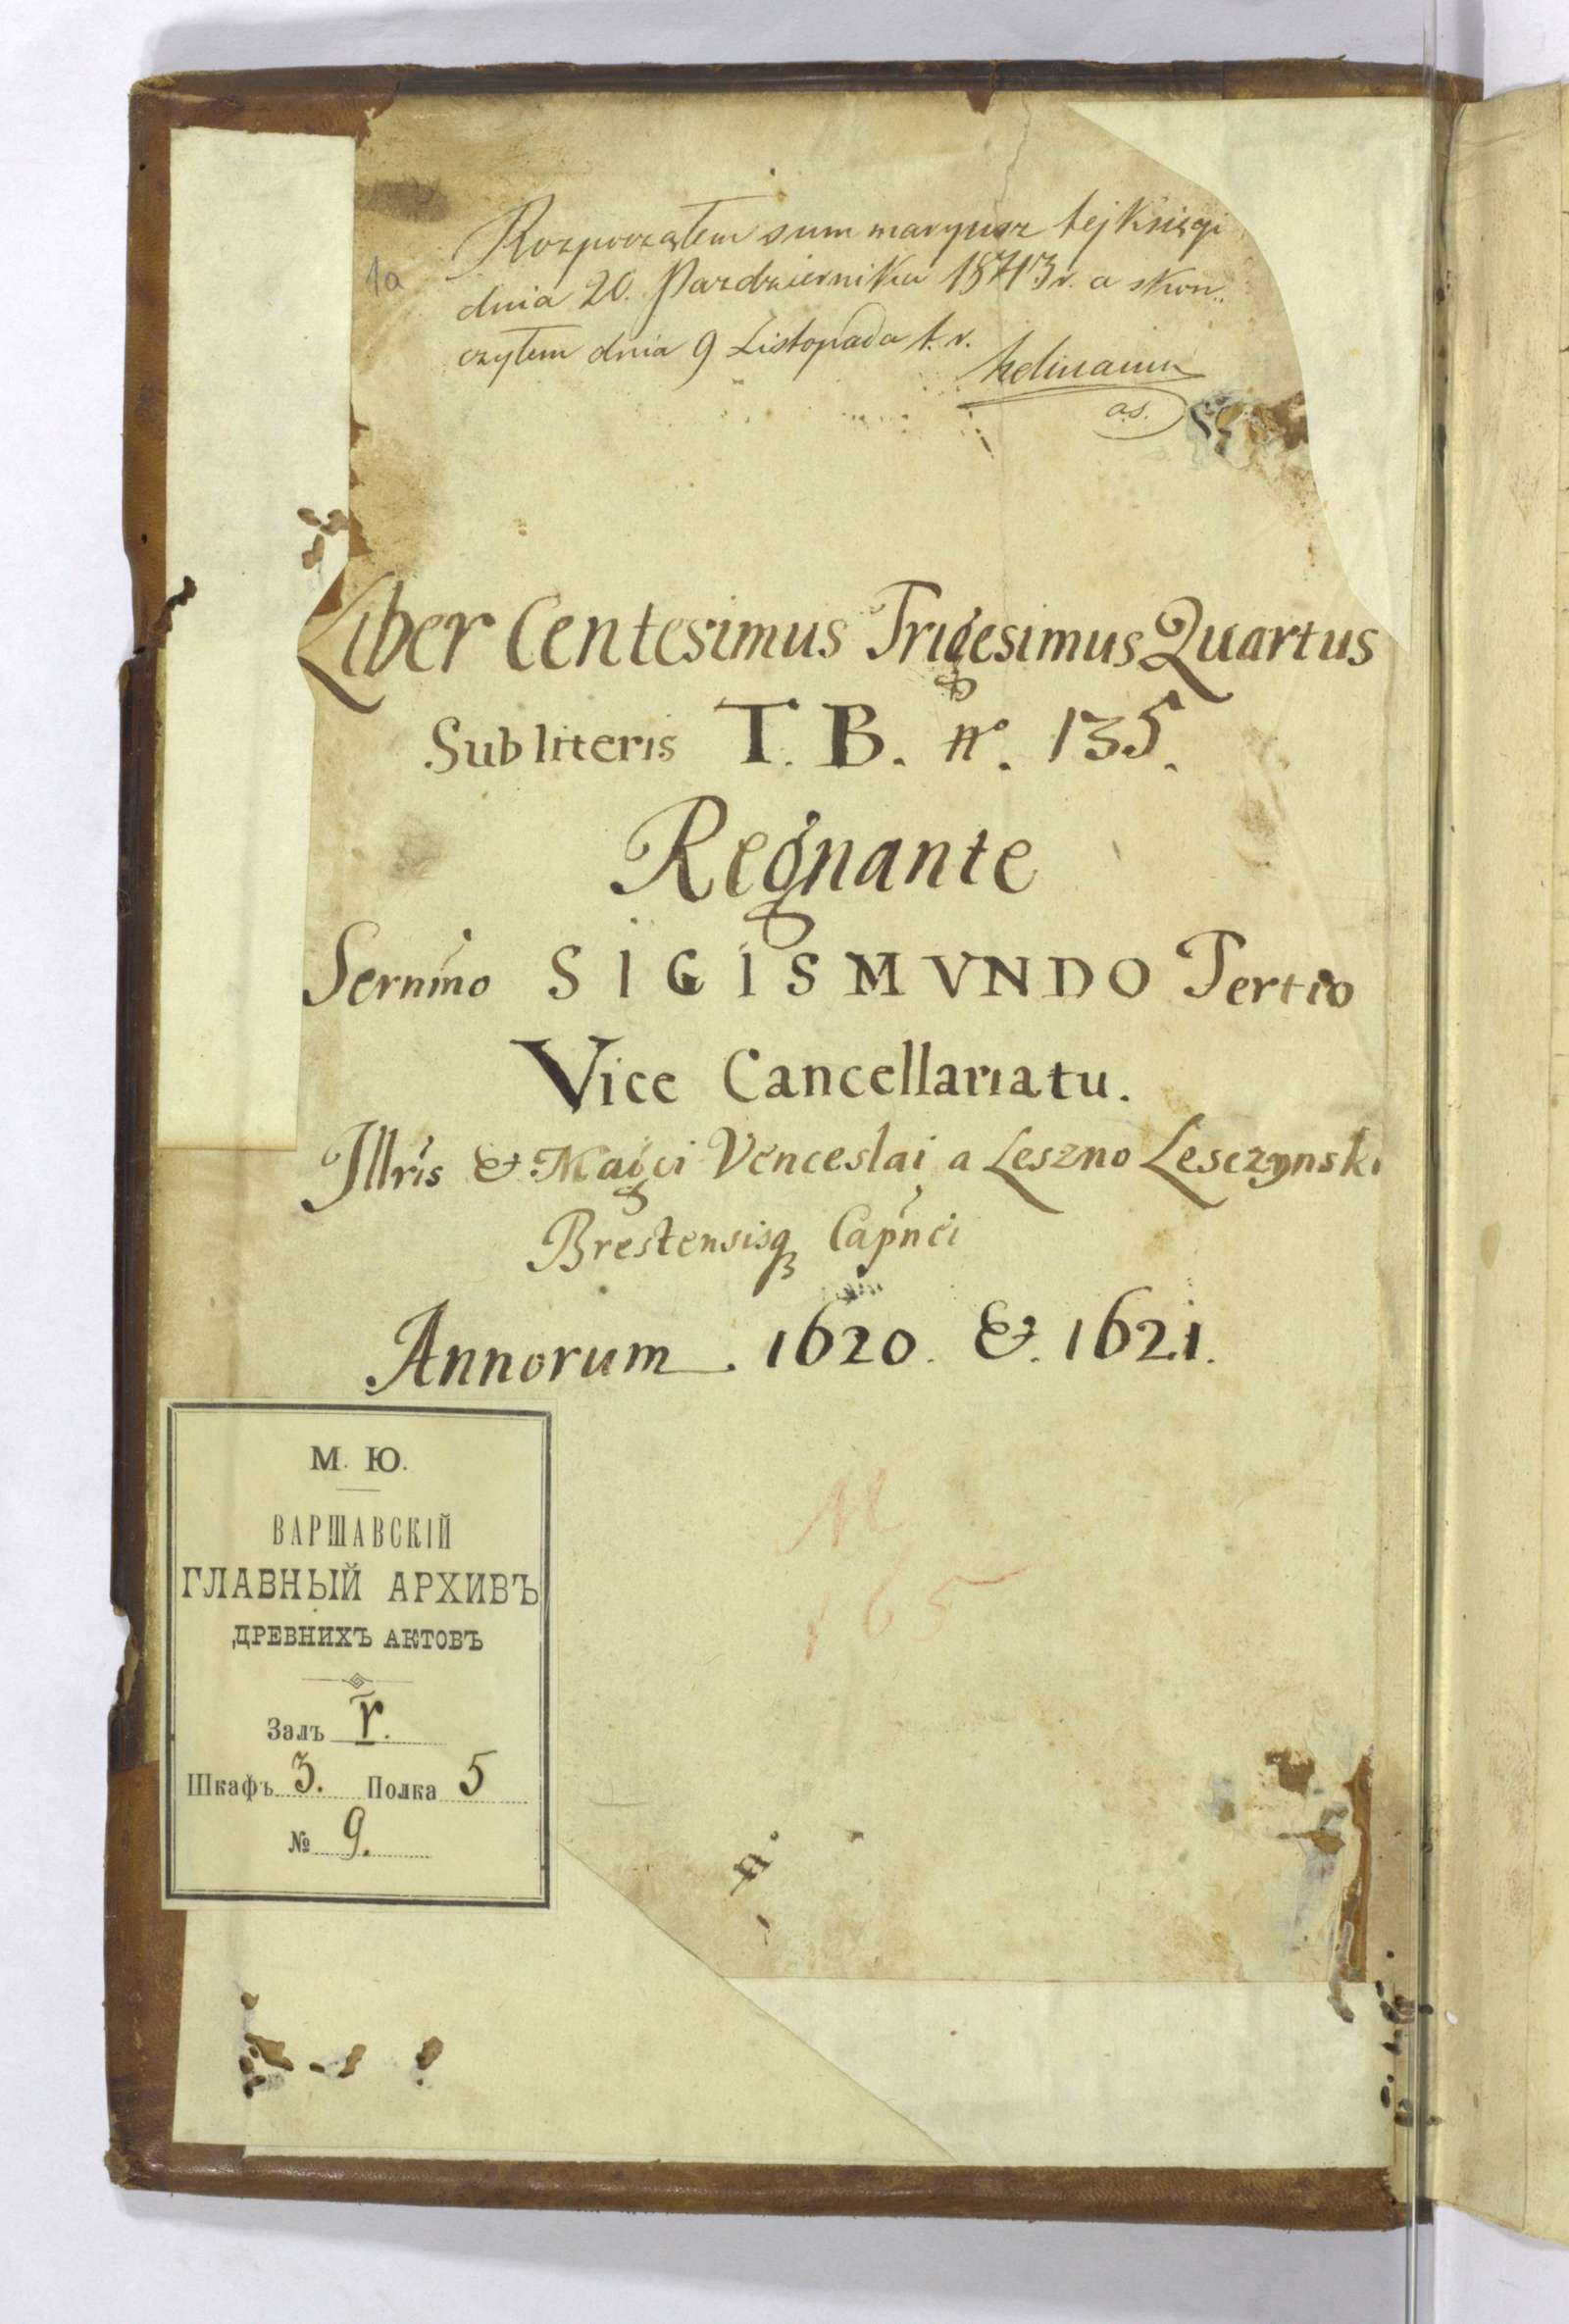 1a
Rozpocząłem summaryusz tej Księgi
dnia 20. Pazdziernika 1873 r. a skoń„
czyłem dnia 9 Listopada t. r.
as.
Liber Centesimus Trigesimus Quartus
Sub literis T. B. nº. 135.
Regnante
Sernmo SIGISMVNDO Tertio
Vice Cancellariatu.
Illris & Magci Venceslai a Leszno Lesczynski
Brestensisq Capnei
Annorum. 1620. &. 1621.
М. Ю.
ВАРШАВСКІЙ
ГЛАВНЫЙ АРХИВЪ
ДРЕВНИХЪ АКТОВЪ
Залъ I.
Шкафъ 3. Полка 5
№ 9.
165